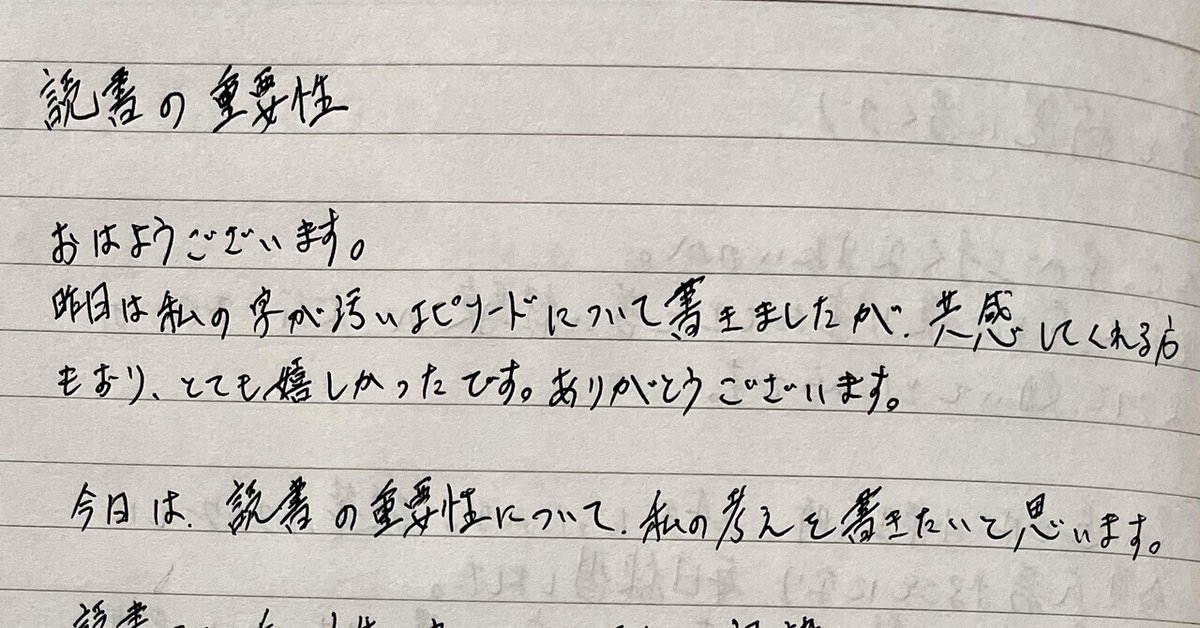 読書の重要性
おはようございます。
昨日は私の字が汚いエピソードについて書きましたが、共感してくれる方
もおり、とても嬉しかったです。ありがとうございます。
今日は、読書の重要性について、私の考えを書きたいと思います。
読書